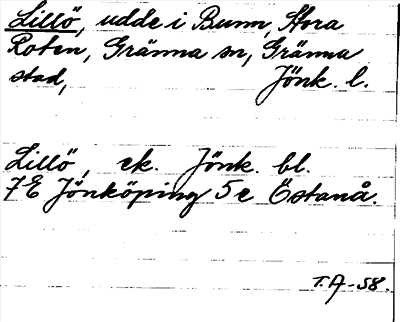 Lillö, udde i Bunn, Stora
Roten, Gränna sn, Gränna
stad, Jönk. l.
Lillö, ek. Jönk. bl.
7E Jönköping 5e Östanå.
T.A-58.